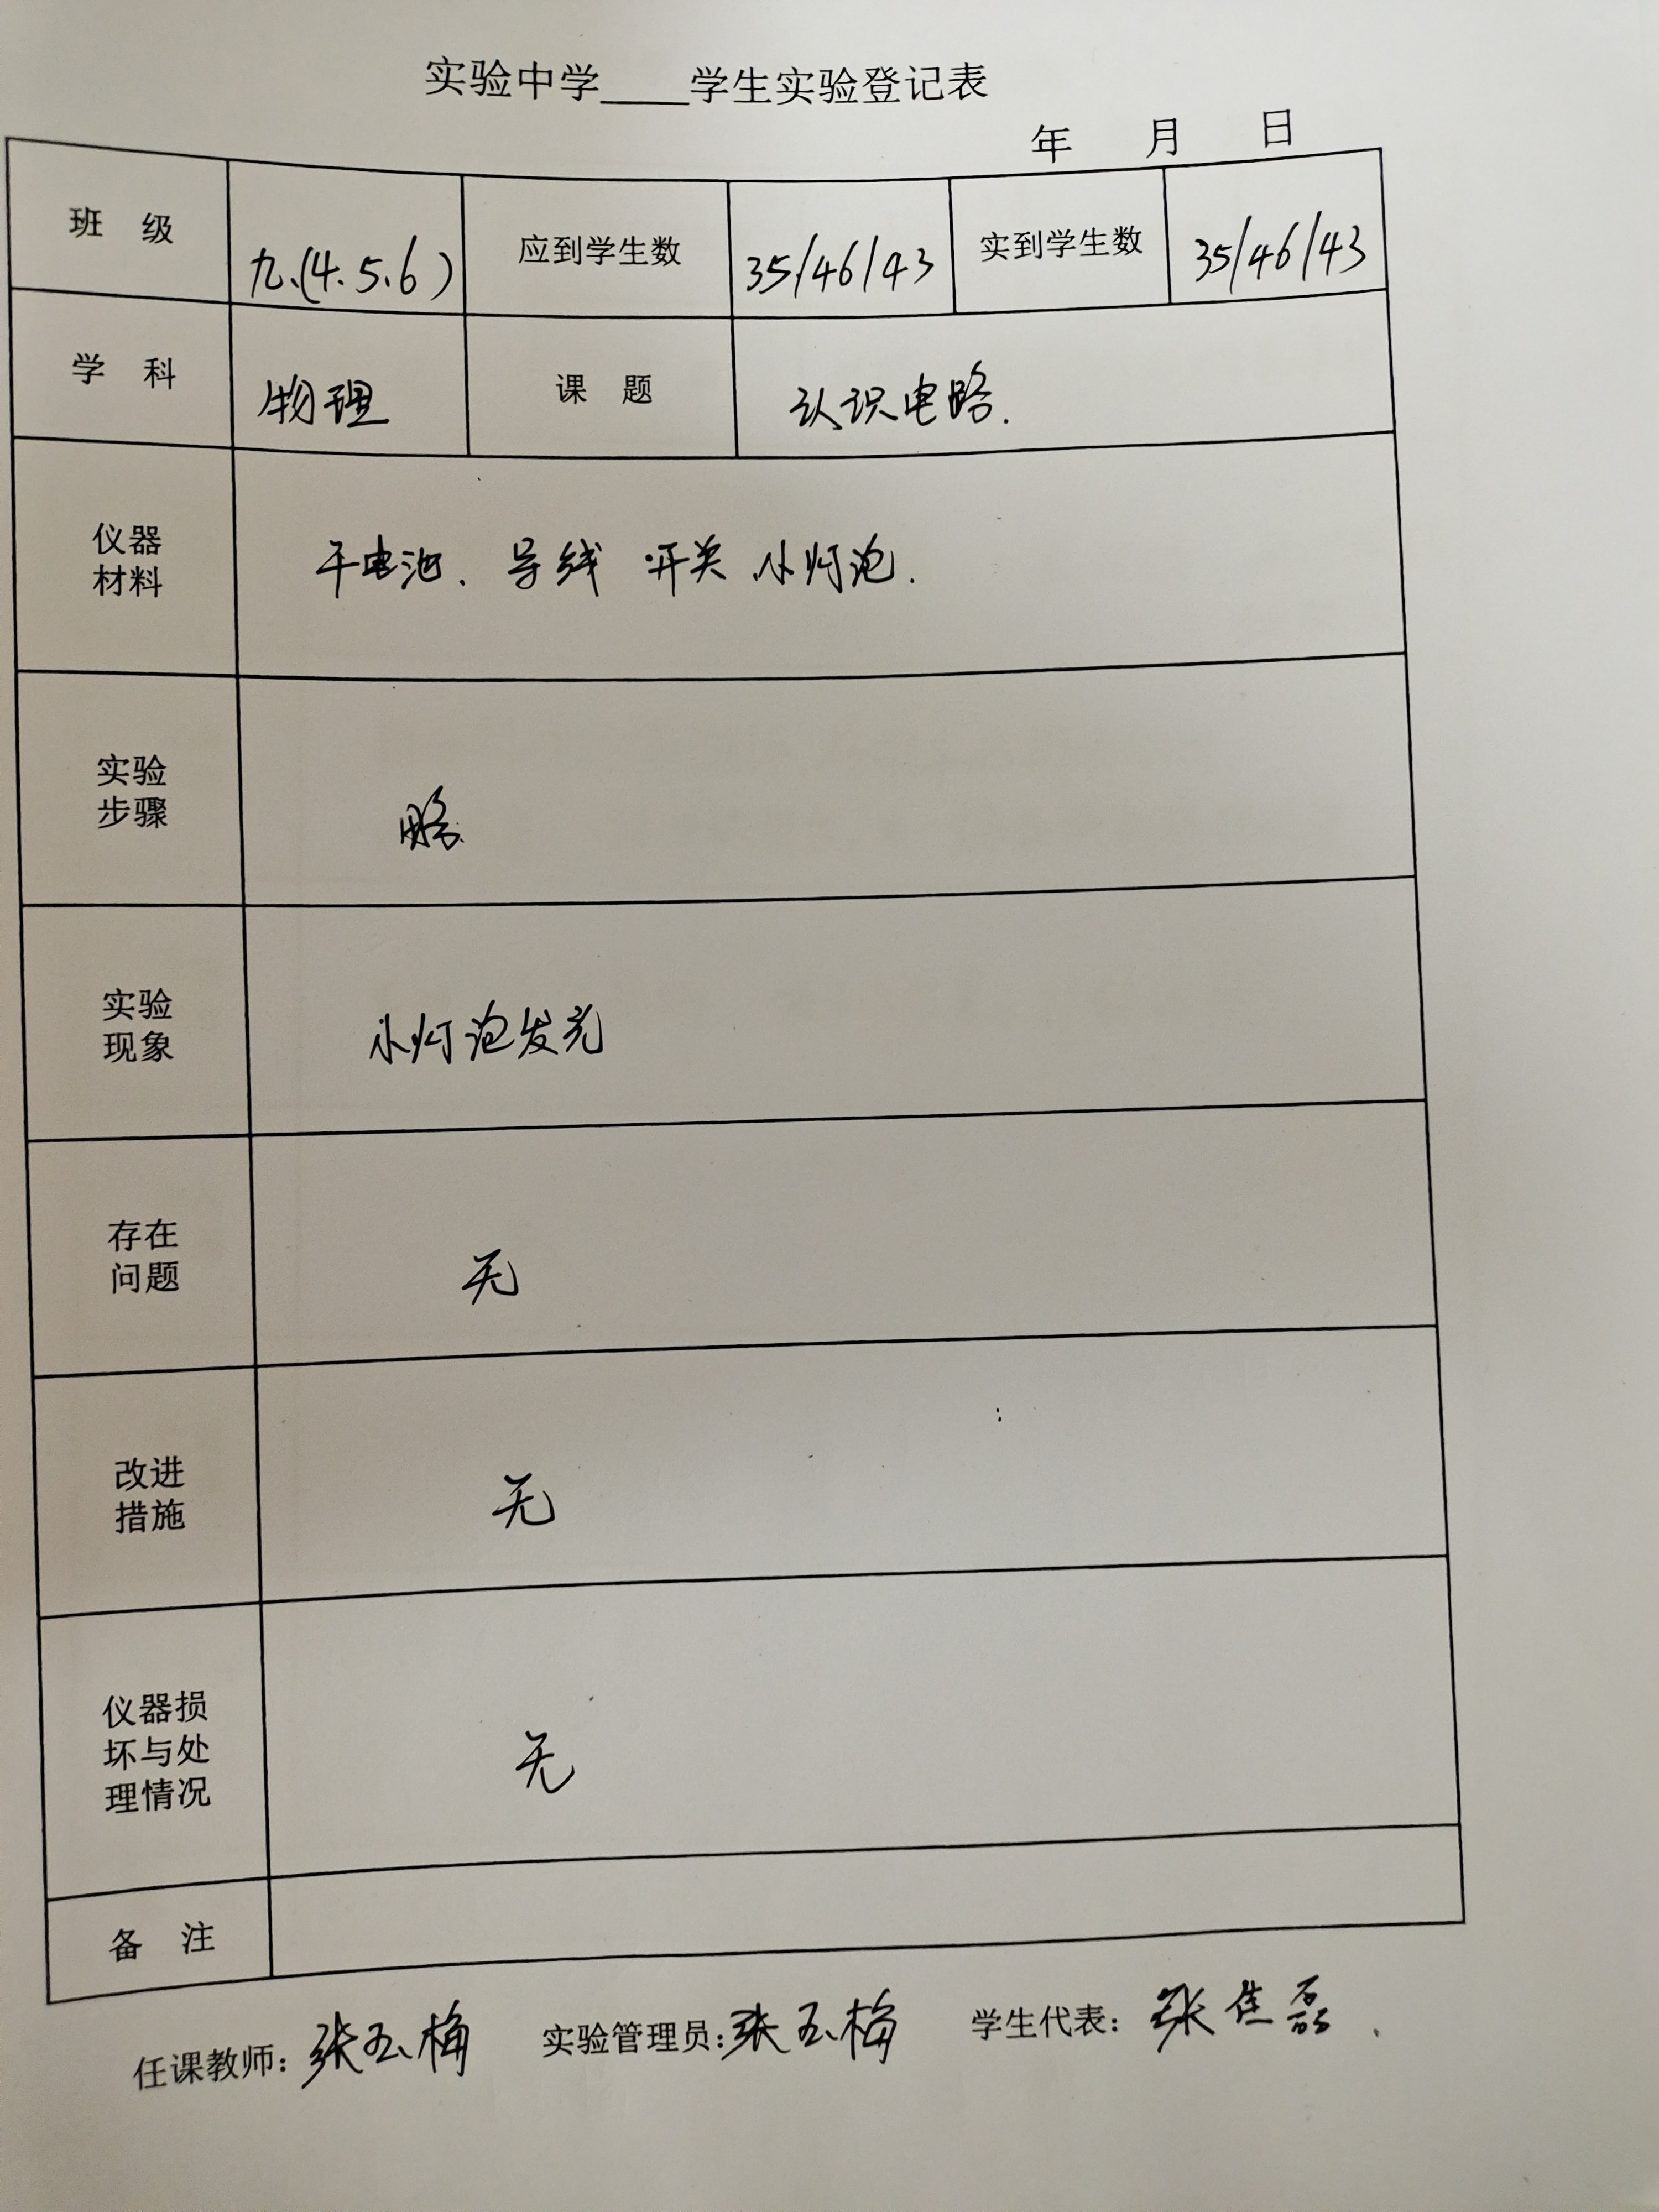 实验中学____学生实验登记表
年 月 日
班 级 九.(4.5.6) 应到学生数 35/46/43 实到学生数 35/46/43
学 科 物理 课 题 认识电路.
仪器
材料
干电池、导线 开关、小灯泡.
实验
步骤
略.
实验
现象
小灯泡发光
存在
问题
无
改进
措施
无
仪器损
坏与处
理情况
无
备 注
任课教师：张玉梅 实验管理员：张玉梅 学生代表：张佳磊.